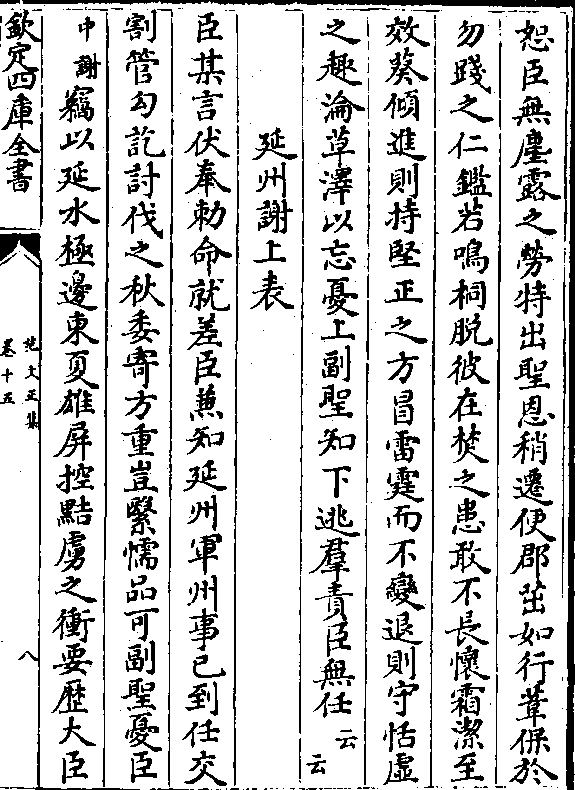 恕臣無塵露之勞特出聖恩稍遷便郡茁如行葦保於
勿踐之仁鑑若鳴桐脫彼在焚之患敢不長懷霜潔至
效葵傾進則持堅正之方冒雷霆而不變退則守恬虛
之趣淪草澤以忘憂上副聖知下逃羣責臣無任云云
延州謝上表
臣某言伏奉勅命就差臣兼知延州軍州事已到任交
割管勾訖討伐之秋委寄方重豈繄懦品可副聖憂臣
中謝竊以延水極邊東夏雄屏控黠虜之衝要歷大臣
欽定四庫全書
范文正集
卷十五
八